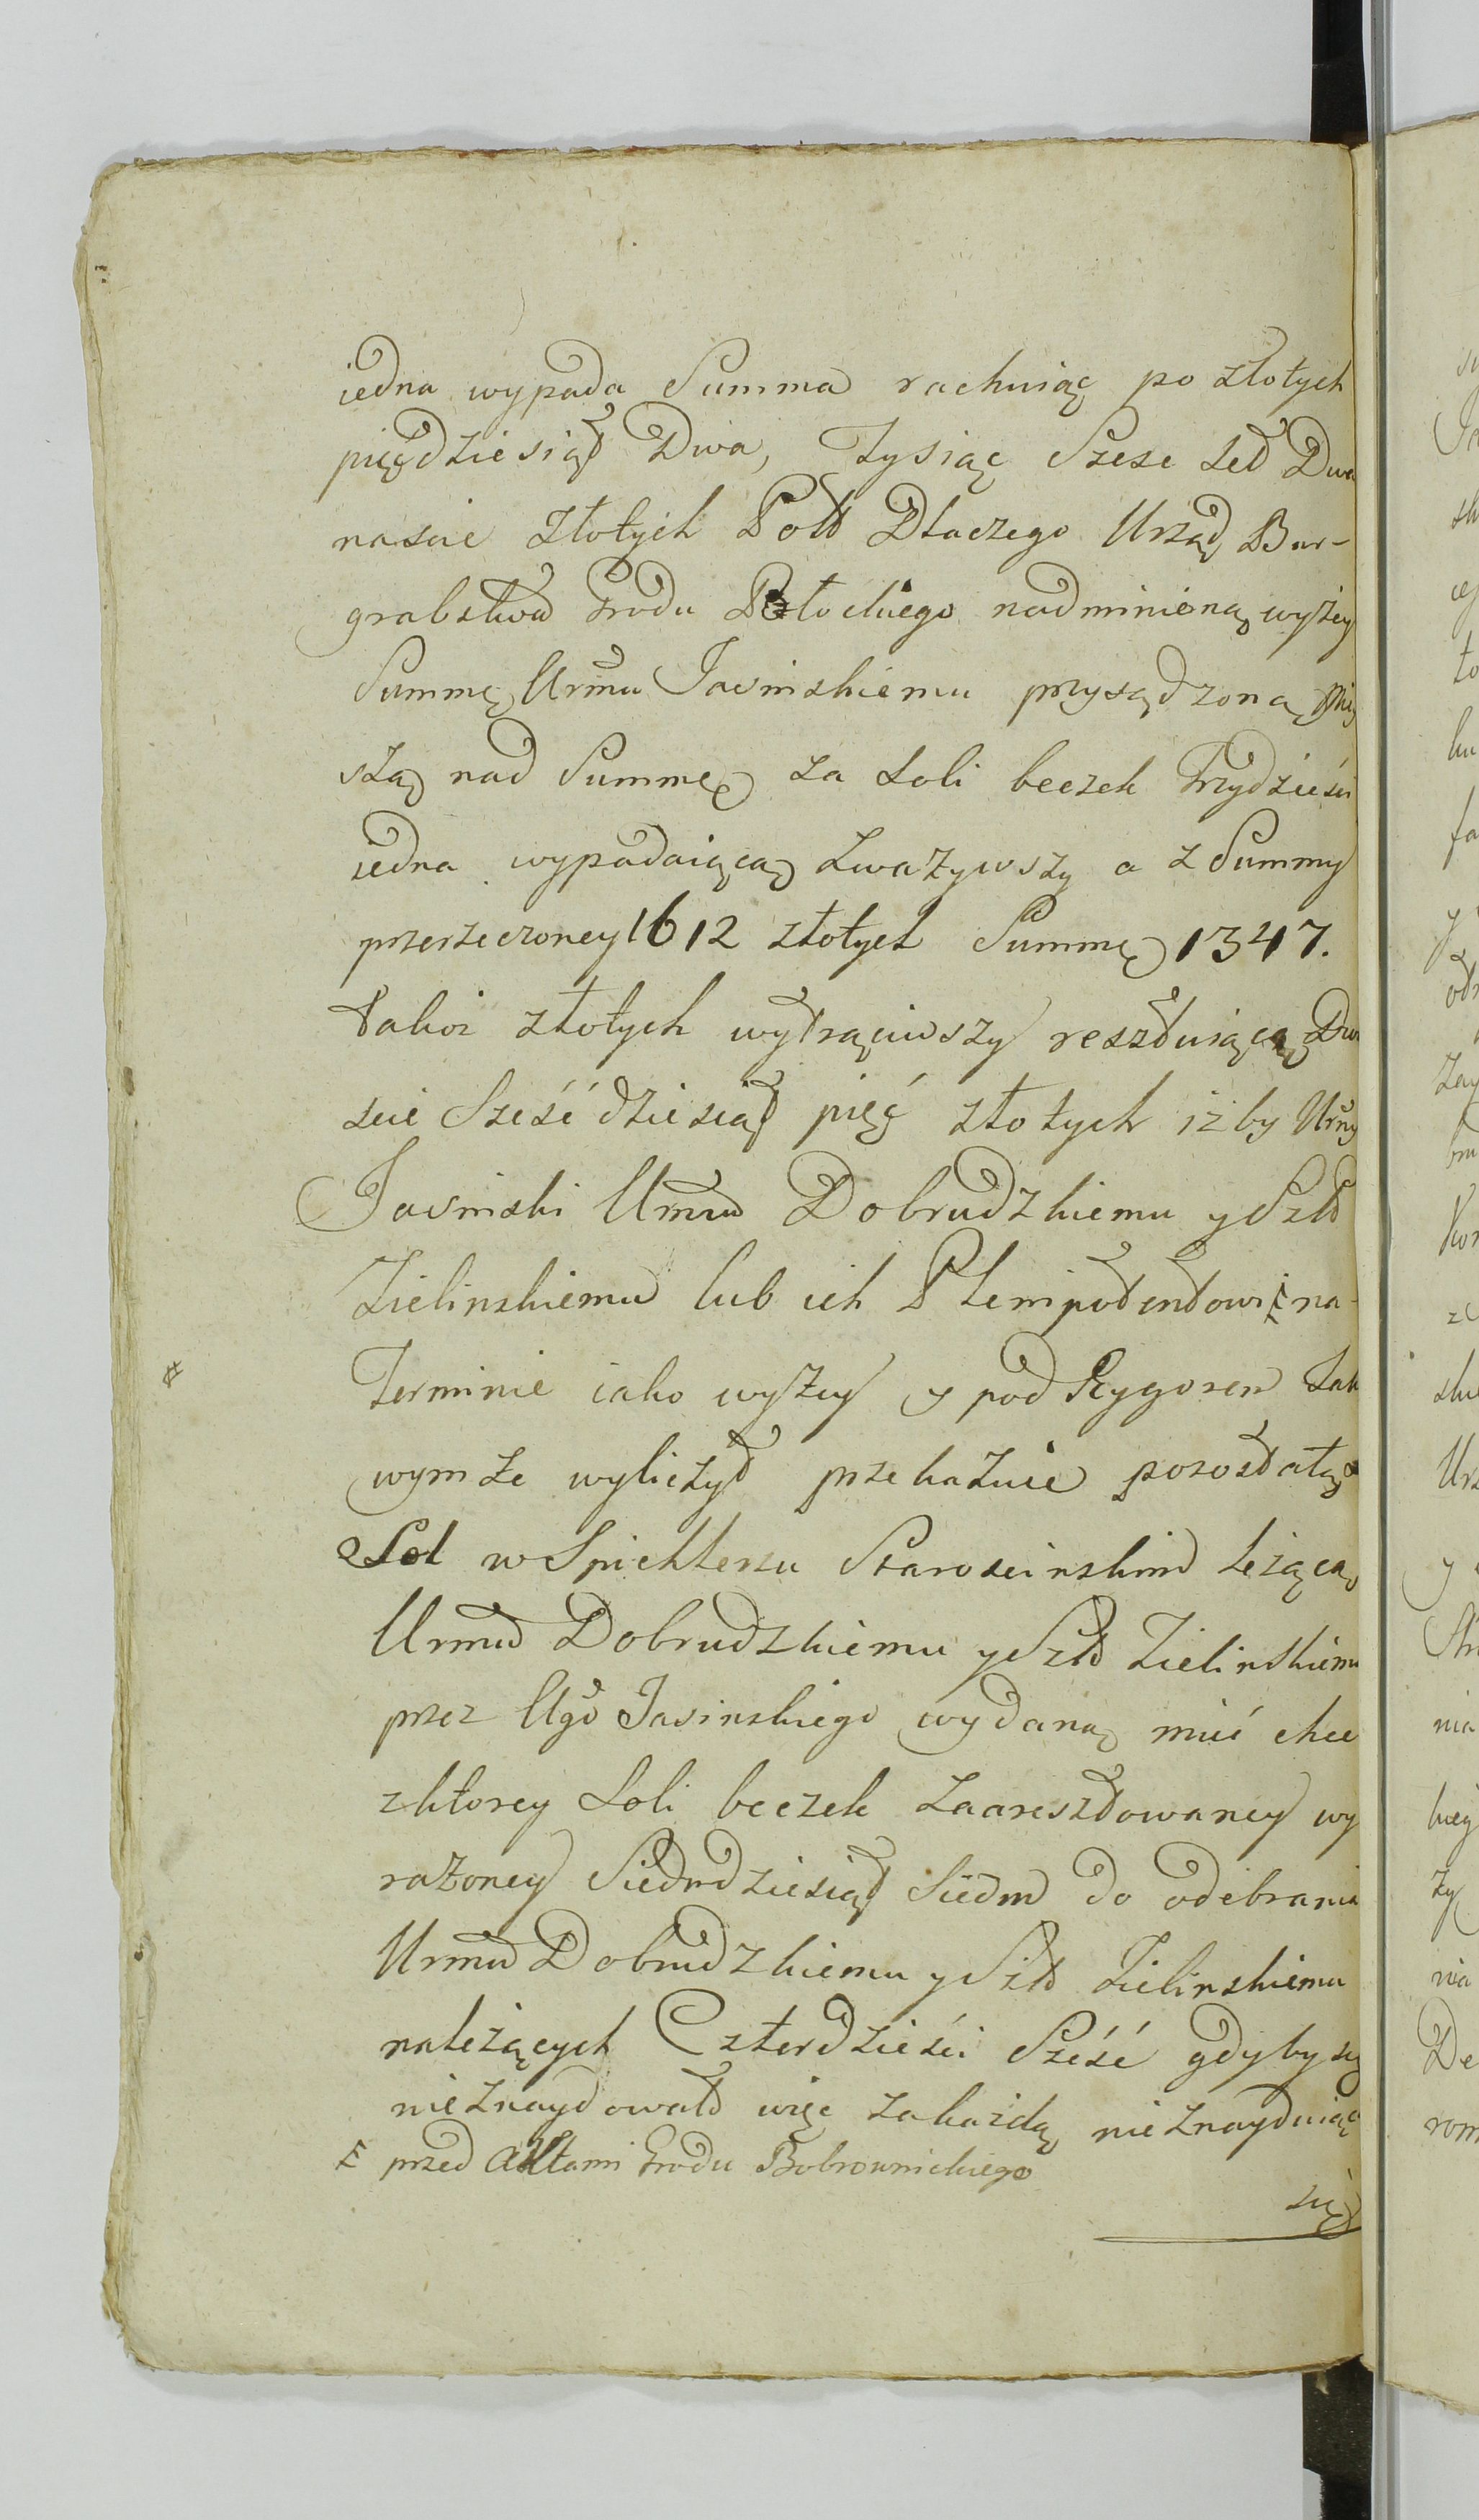 iedna wypada Summa rachuiąc po złotych
pięćdziesiąt Dwa, Tysiąc Szesc set Dwa
nascie złotych Pols Dlaczego Urząd Bur-
grabstwa Grodu Płockiego nadmienioną wyżey
Summę Urmu Jasinskiemu przysądzoną
szą nad Summę za Soli beczek Trzydzieści
iedna wypadaiącą zwazywszy a z Summy
przerzeczoney 1612 złotych Summę 1347.
takoż złotych wytrąciwszy resztuiącą Dwie
scie Sześćdziesiąt pięć złotych iżby Urny
Jasinski Urmu Dobrudzkiemu y Szlt
Zielinskiemu lub ich Plenipotentowi na
Terminie iako wyżey y pod Rygorem tak
wymże wyliczył przekazuie pozostałą
Sol w Spichlerzu Staroscinskim leżącą
Urmu Dobrudzkiemu y Szlt Zielinskiemu
przez Ugo Jasinskiego wydaną mieć chce
z ktorey Soli beczek zaaresztowaney wy
rażoney Siedmdziesiąt Siedm do odebrania
Urmu Dobrudzkiemu y Szlt Zielinskiemu
należących Czterdzieści Sześć gdyby się
nieznaydowało więc zakażdą nieznayduiącą
przed Aktami Grodu Bobrownickiego
się